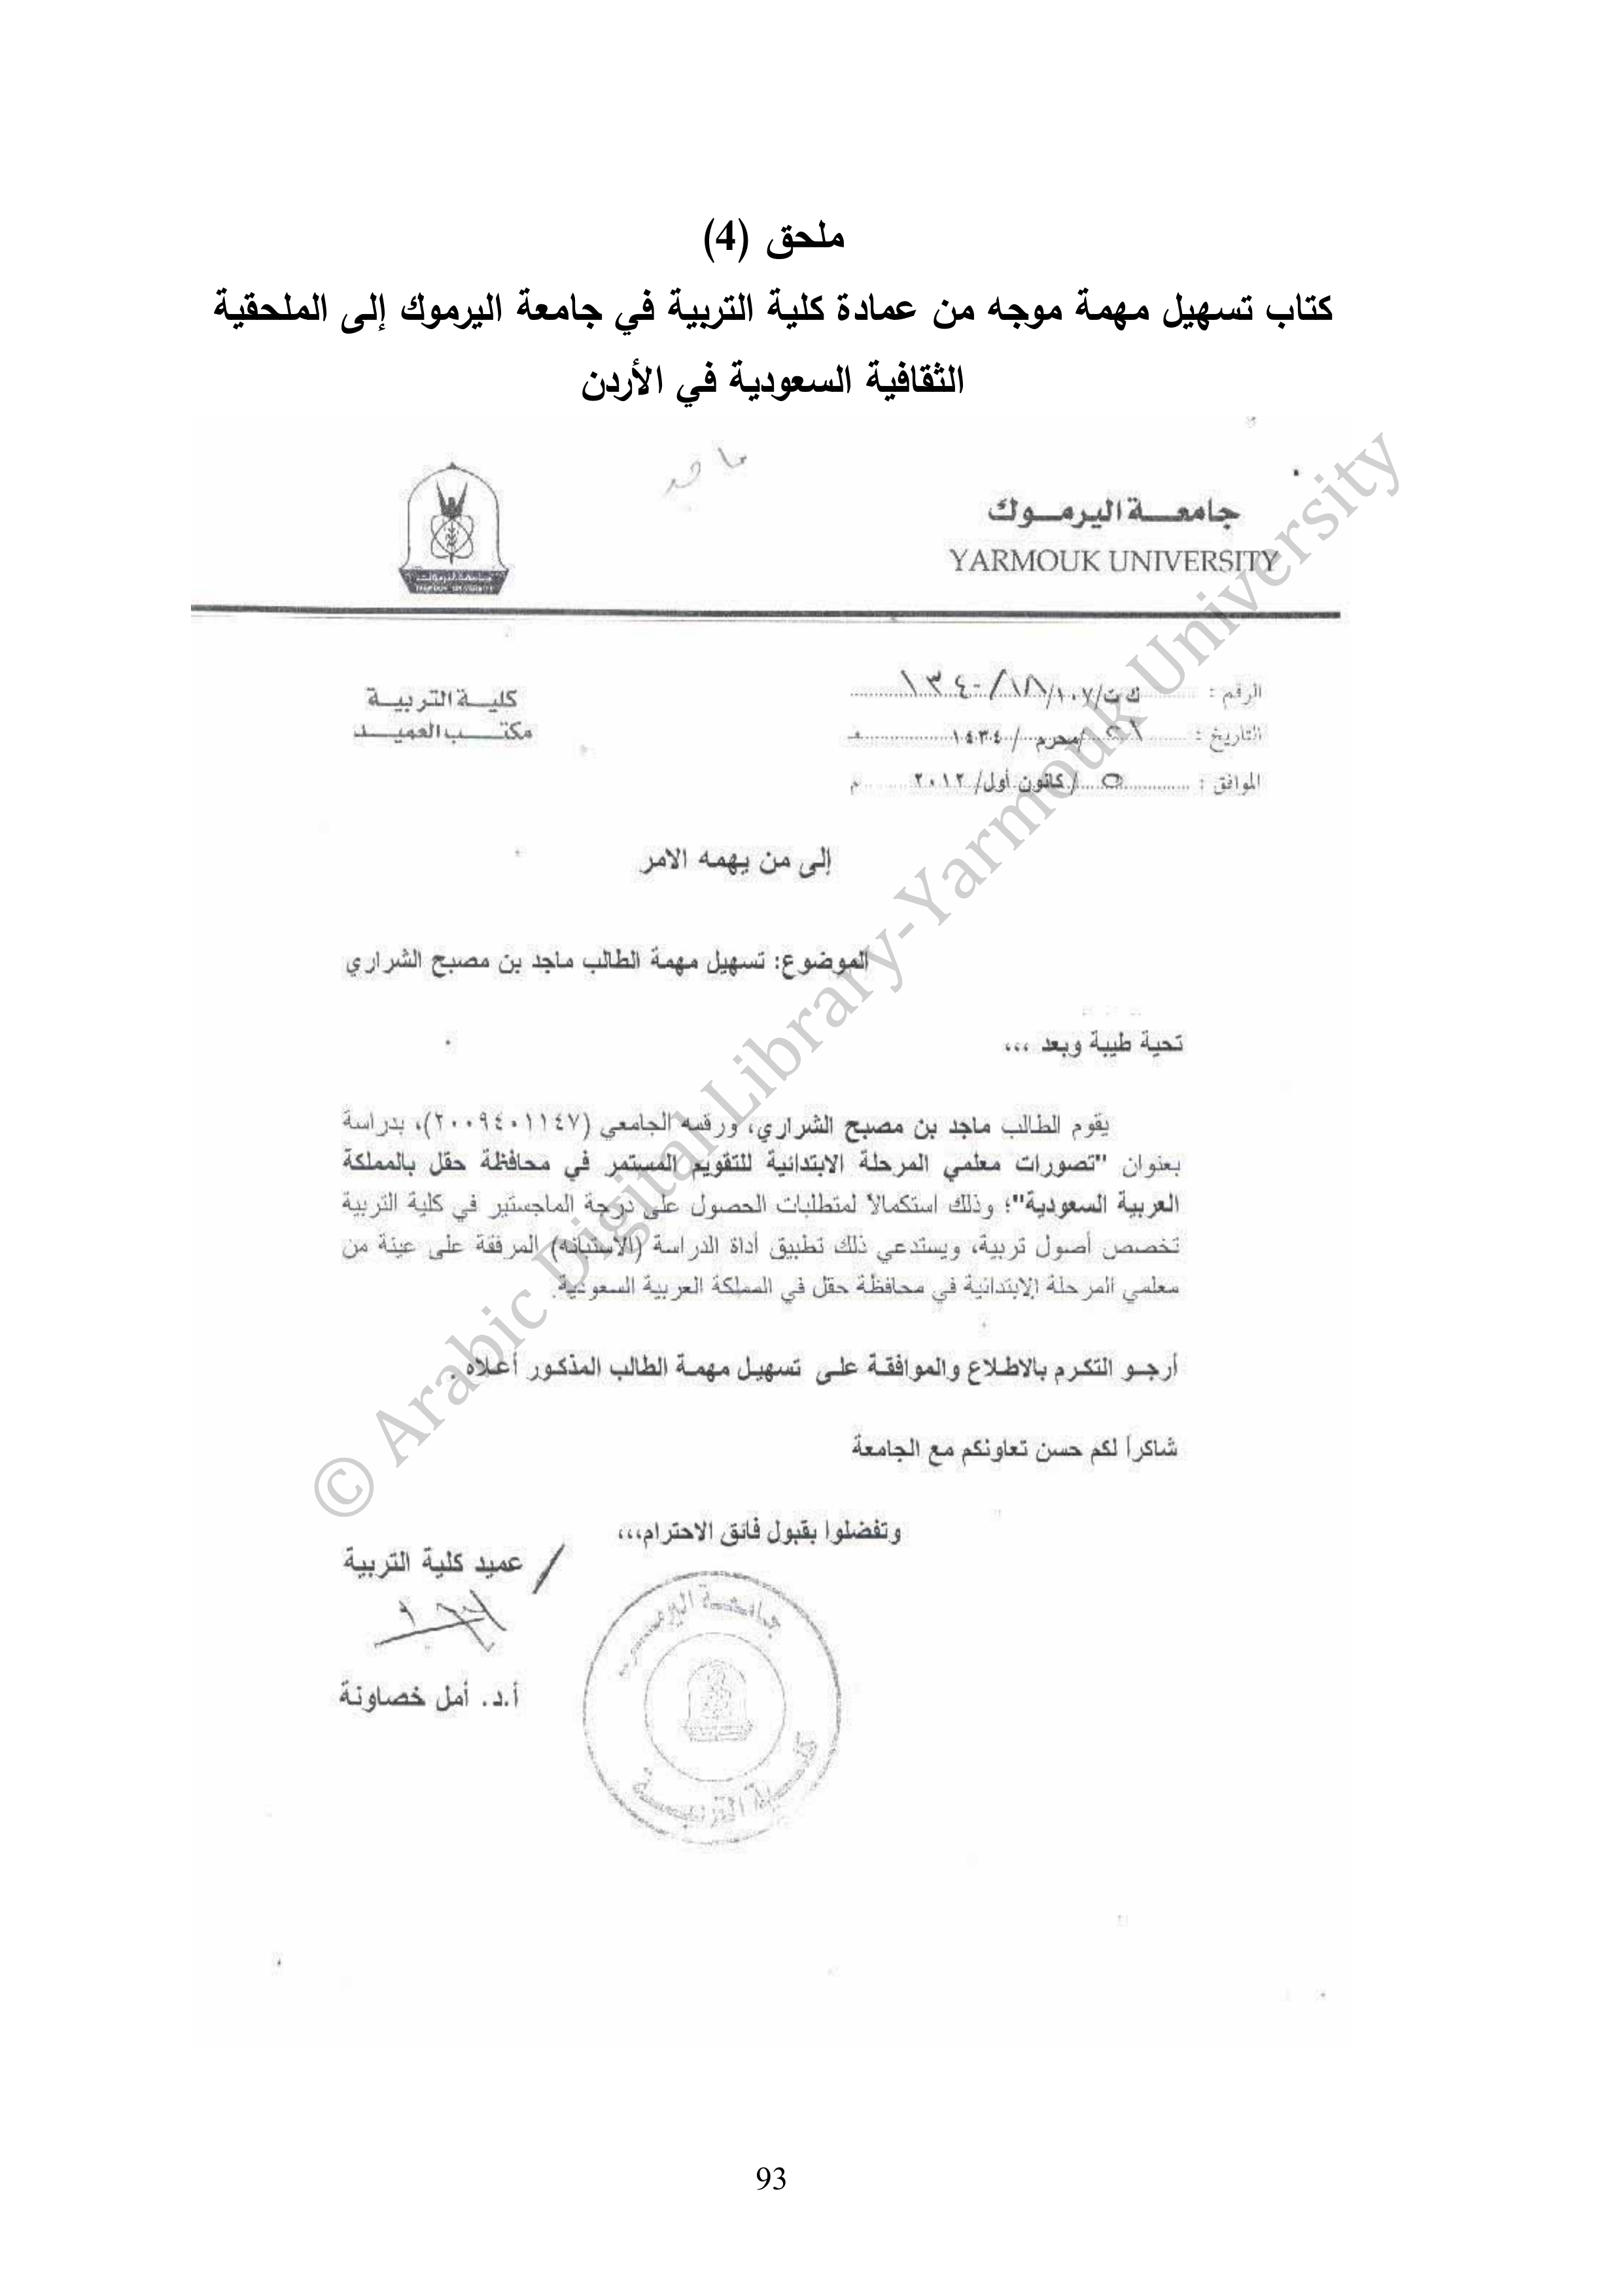 ملحق (4)
كتاب تسهيل مهمة موجه من عمادة كلية التربية في جامعة اليرموك إلى الملحقية
الثقافية السعودية في الأردن
ماجد
جامعـــة اليرمــوك
YARMOUK UNIVERSITY
كليـــة التربيـة
مكتـــــب العميـــد
الرقم : ك ت/١٠٧/
التاريخ : /محرم / ١٤٣٤ هـ
الموافق : ٥ / كانون أول/ ٢٠١٢ م
إلى من يهمه الامر
الموضوع: تسهيل مهمة الطالب ماجد بن مصبح الشراري
تحية طيبة وبعد ،،،
يقوم الطالب ماجد بن مصبح الشراري، ورقمه الجامعي (٢٠٠٩٤٠١١٤٧)، بدراسة
بعنوان "تصورات معلمي المرحلة الابتدائية للتقويم المستمر في محافظة حقل بالمملكة
العربية السعودية"؛ وذلك استكمالاً لمتطلبات الحصول على درجة الماجستير في كلية التربية
تخصص أصول تربية، ويستدعي ذلك تطبيق أداة الدراسة (الاستبانة) المرفقة على عينة من
معلمي المرحلة الإبتدائية في محافظة حقل في المملكة العربية السعودية.
أرجـو التكـرم بالاطـلاع والموافقـة علـى تسهيـل مهمـة الطالب المذكـور أعـلاه .
شاكراً لكم حسن تعاونكم مع الجامعة
وتفضلوا بقبول فائق الاحترام،،،
عميد كلية التربية
أ.د. أمل خصاونة
جامعـة اليرموك
كليـة التربيـة
© Arabic Digital Library-Yarmouk University
93